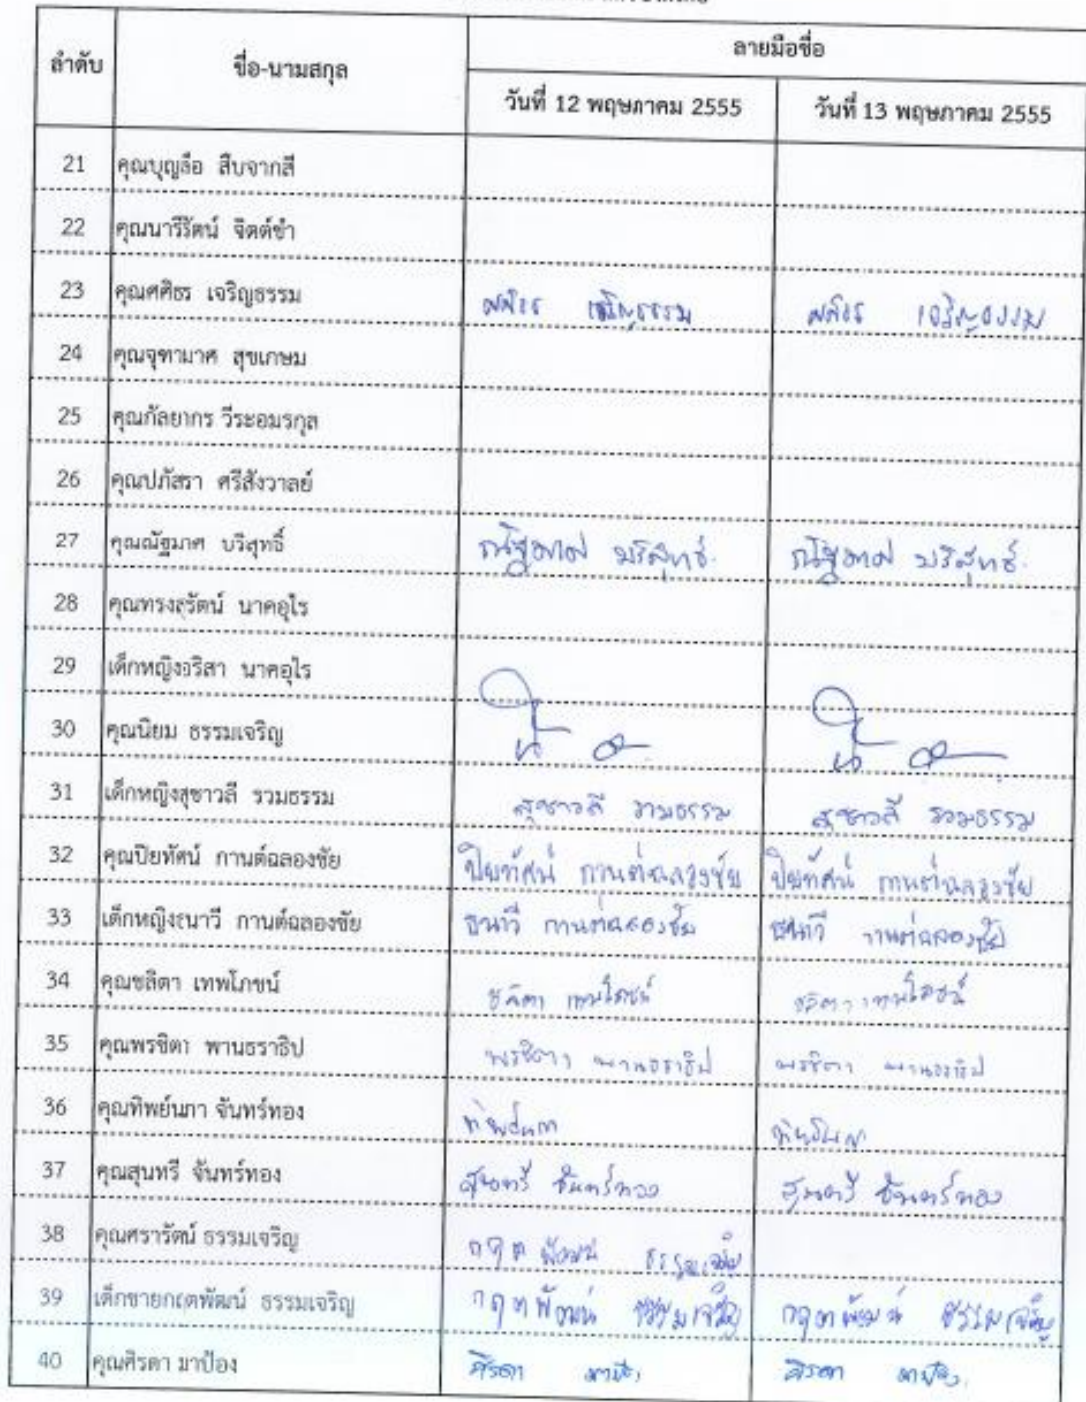 ลำดับ ชื่อ-นามสกุล ลายมือชื่อ
วันที่ 12 พฤษภาคม 2555 วันที่ 13 พฤษภาคม 2555
21 คุณบุญลือ สืบจากสี
22 คุณนารีรัตน์ จิตต์ซำ
23 คุณศศิธร เจริญธรรม ศศิธร เจริญธรรม ศศิธร เจริญธรรม
24 คุณจุฑามาศ สุขเกษม
25 คุณกัลยากร วีระอมรกุล
26 คุณปภัสรา ศรีสังวาลย์
27 คุณณัฐมาศ บริสุทธิ์ ณัฐมาศ บริสุทธิ์ ณัฐมาศ บริสุทธิ์
28 คุณทรงสุรัตน์ นาคอุไร
29 เด็กหญิงอริสา นาคอุไร
30 คุณนิยม ธรรมเจริญ
31 เด็กหญิงสุชาวลี รวมธรรม สุชาวลี รวมธรรม สุชาวลี รวมธรรม
32 คุณปิยทัศน์ กานต์ฉลองชัย ปิยทัศน์ กานต์ฉลองชัย ปิยทัศน์ กานต์ฉลองชัย
33 เด็กหญิงธนาวี กานต์ฉลองชัย ธนาวี กานต์ฉลองชัย ธนาวี กานต์ฉลองชัย
34 คุณชลิตา เทพโภชน์ ชลิตา เทพโภชน์ ชลิตา เทพโภชน์
35 คุณพรชิตา พานธราธิป พรชิตา พานธราธิป พรชิตา พานธราธิป
36 คุณทิพย์นภา จันทร์ทอง ทิพย์นภา
37 คุณสุนทรี จันทร์ทอง สุนทรี จันทร์ทอง สุนทรี จันทร์ทอง
38 คุณศรารัตน์ ธรรมเจริญ กฤตพัฒน์ ธรรมเจริญ
39 เด็กชายกฤตพัฒน์ ธรรมเจริญ กฤตพัฒน์ ธรรมเจริญ กฤตพัฒน์ ธรรมเจริญ
40 คุณศิรดา มาป้อง ศิรดา มาป้อง ศิรดา มาป้อง